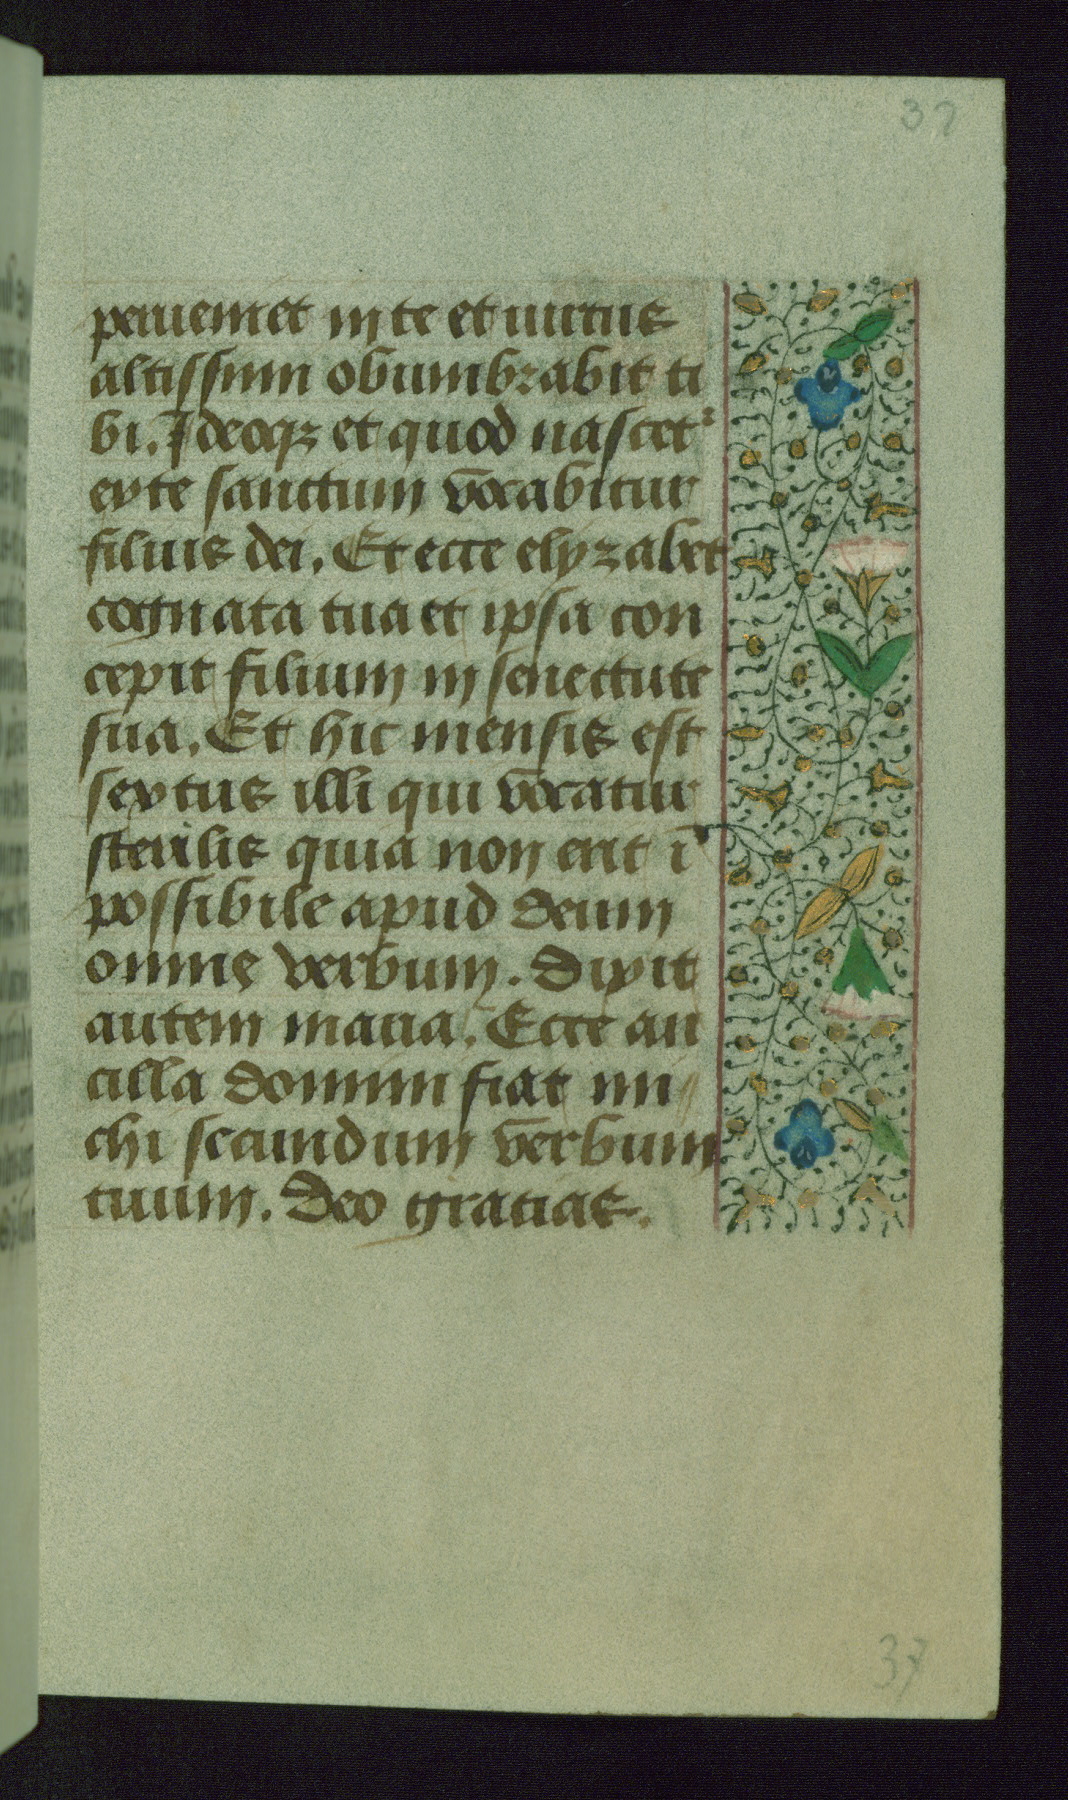 37
perueniet in te et uirtus
altissimi obumbrabit ti
bi. Ideoqꝫ et quod nascet᷑
ex te sanctum vocabitur
filius dei. Et ecce elyzabet
cognata tua et ipsa con
cepit filium in senectute
sua. Et hic mensis est
sextus illi qui vocatur
sterilis quia non erit ī
possibile apud deum
omne verbum. Dixit
autem maria. Ecce an
cilla domini fiat mi
chi secundum verbum
tuum. Deo gracias.
37